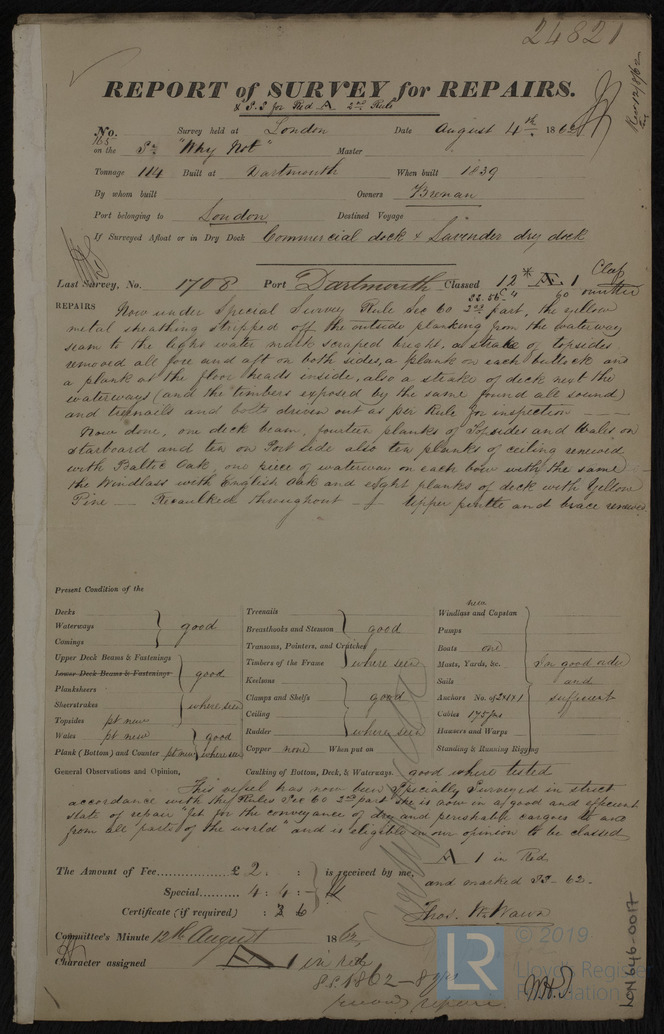 24821
REPORT of SURVEY for REPAIRS.
& S.S for Red A 2nd Rule
Rec 12/8/62
No. Survey held at London Date August 4th 1862
165
on the Sr "Why Not" Master
Tonnage 114 Built at Dartmouth When built 1839
By whom built Owners Brenan
Port belonging to London Destined Voyage
If Surveyed Afloat or in Dry Dock Commercial dock & Lavender dry dock
Last Survey, No. 1708 Port Dartmouth Classed 12 * Æ 1
REPAIRS Now under Special Survey Rule Sec 60 2nd part, the yellow
metal sheathing stripped off the outside planking from the waterway
seam to the light water mark scraped bright, a strake of topsides
removed all fore and aft on both sides, a plank on each buttock and
a plank at the floor heads inside, also a strake of deck next the
waterways (and the timbers exposed by the same found all sound)
and treenails and bolts driven out as per Rule for inspection
Now done, one deck beam, fourteen planks of Topsides and Wales on
starboard and ten on Port side also ten planks of ceiling renewed
with Baltic Oak, one piece of waterway on each bow with the same
the Windlass with English Oak and eight planks of deck with Yellow
Pine — Recaulked throughout — Upper pintle and brace renewed
Present Condition of the
Decks
Waterways good
Comings
Upper Deck Beams & Fastenings
Lower Deck Beams & Fastenings good
Planksheers
Sheerstrakes where seen
Topsides pt new
Wales pt new good
Plank (Bottom) and Counter pt new where seen
Treenails
Breasthooks and Stemson good
Transoms, Pointers, and Crutches
Timbers of the Frame where seen
Keelsons
Clamps and Shelfs good
Ceiling
Rudder where seen
Copper none When put on
new
Windlass and Capstan
Pumps
Boats one
Masts, Yards, &c. In good order
Sails and
Anchors No. of 2 & 1 & 1 sufficient
Cables 175 fms
Hawsers and Warps
Standing & Running Rigging
General Observations and Opinion, Caulking of Bottom, Deck, & Waterways good where tested
This vessel has now been Specially Surveyed in strict
accordance with the Rules Sec 60 2nd part she is now in a good and efficient
state of repair "fit for the conveyance of dry and perishable cargoes to and
from all parts of the world" and is eligible in our opinion to be classed
A 1 in Red
and marked SS-62.
The Amount of Fee........ £ 2 : : is received by me,
Special........... 4 : 4 : -
Certificate (if required) : 2 6
Thos. W. Wawn
Committee's Minute 12th August 1862
Character assigned A 1 in Red
S.S. 1862 - 8 yrs
LR
© 2019
Lloyd's Register
Foundation
LON 646-0017